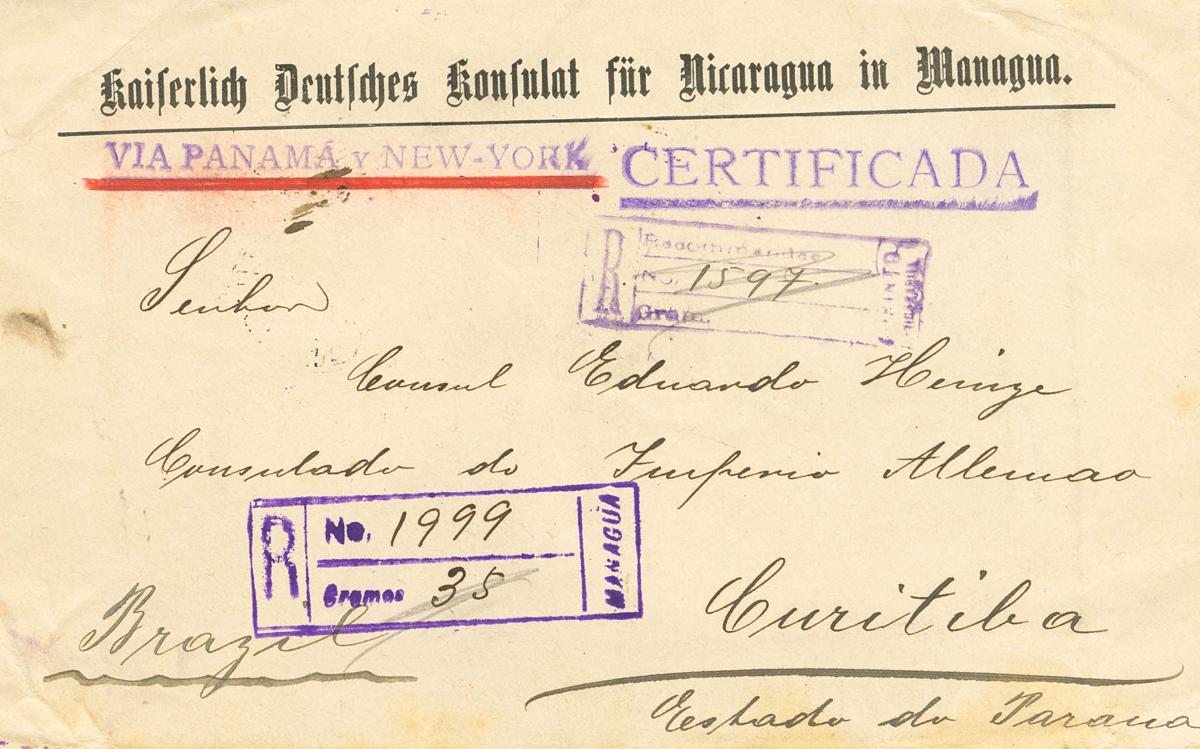 Kaiserlich Deutsches Konsulat für Nicaragua in Managua.
VIA PANAMÁ y NEW-YORK
CERTIFICADA
R Recommandée
No. 1597.
Gram.
CORINTO
Senhor
Consul Eduardo Heinze
Consulado do Imperio Allemao
R No. 1999
Gramos 35
MANAGUA
Brazil
Curitiba
Estado do Parana